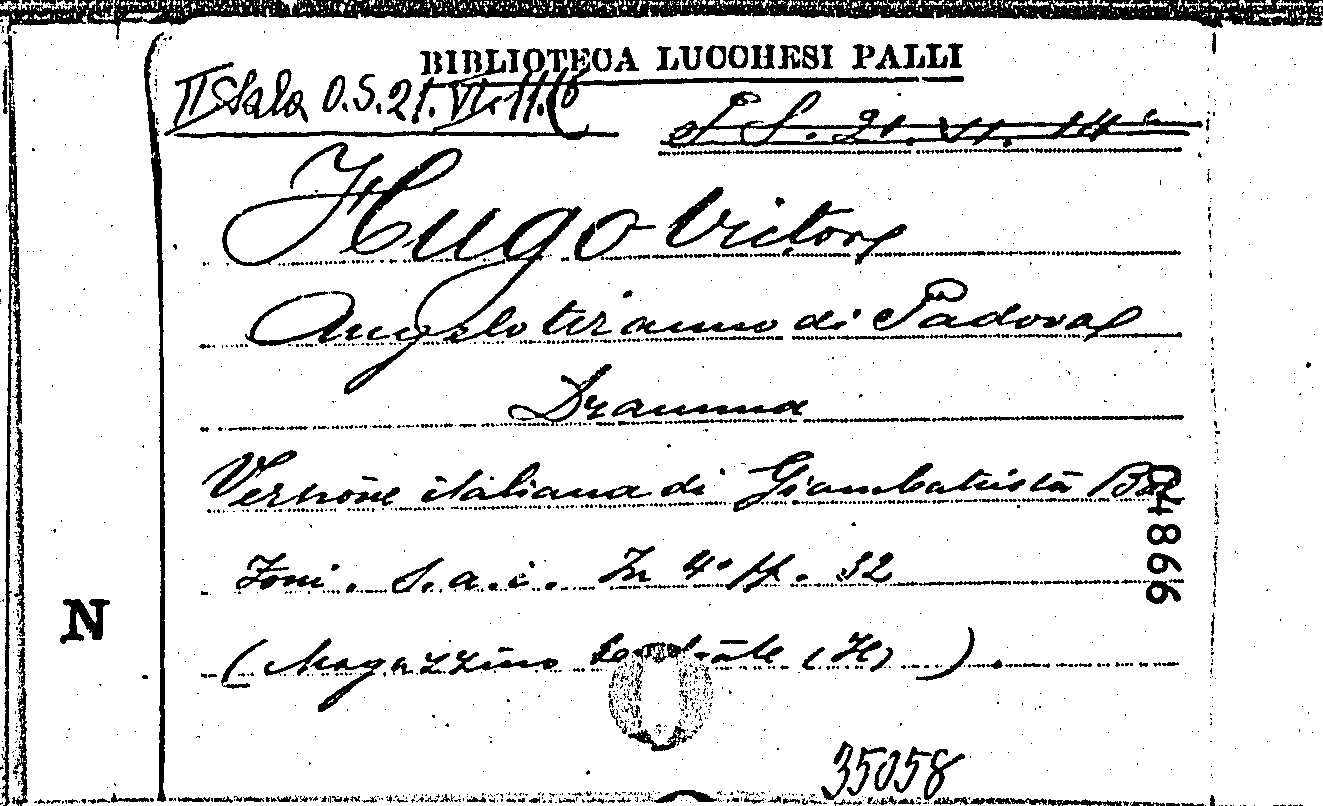 BIBLIOTECA LUCCHESI PALLI
II Sala O.S. 21. VI. 11.(6
S. 21. VI. 14
Hugo Victor
Angelo tiranno di Padova
Dramma
Versione italiana di Giambattista
zoni. s.a.i. In 4° pp. 32
(Magazzino (H) ).
N
04866
35058